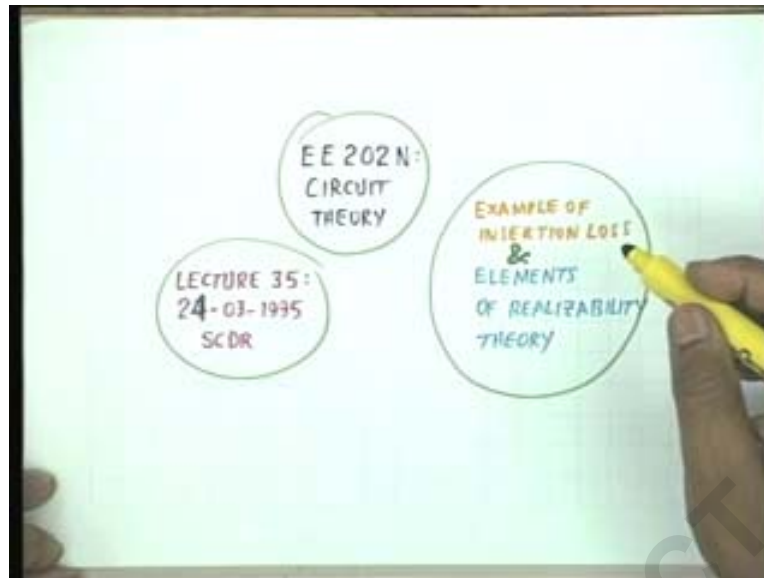 EE 202 N:
CIRCUIT
THEORY
LECTURE 35:
24-03-1995
SCDR
EXAMPLE OF
INSERTION LOSS
&
ELEMENTS
OF REALIZABILITY
THEORY